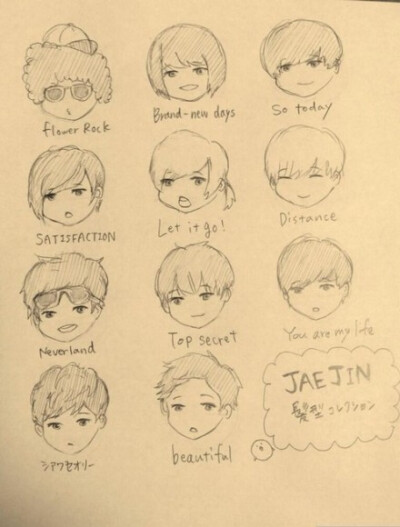 flower Rock
Brand-new days
So today
SATISFACTION
Let it go!
Distance
Neverland
Top secret
You are my life
シアワセオリー
beautiful
JAEJIN
髪型コレクション